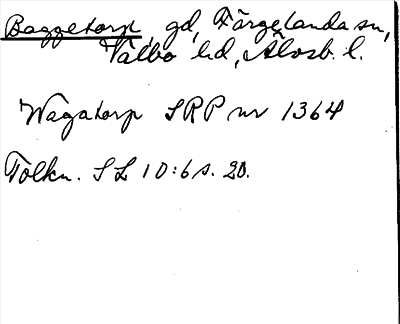 Baggetorp, gd, Färgelanda sn,
Valbo hd, Älvsb. l.
Wagatorp SRP nr 1364
Tolkn. SL 10:6 s. 20.